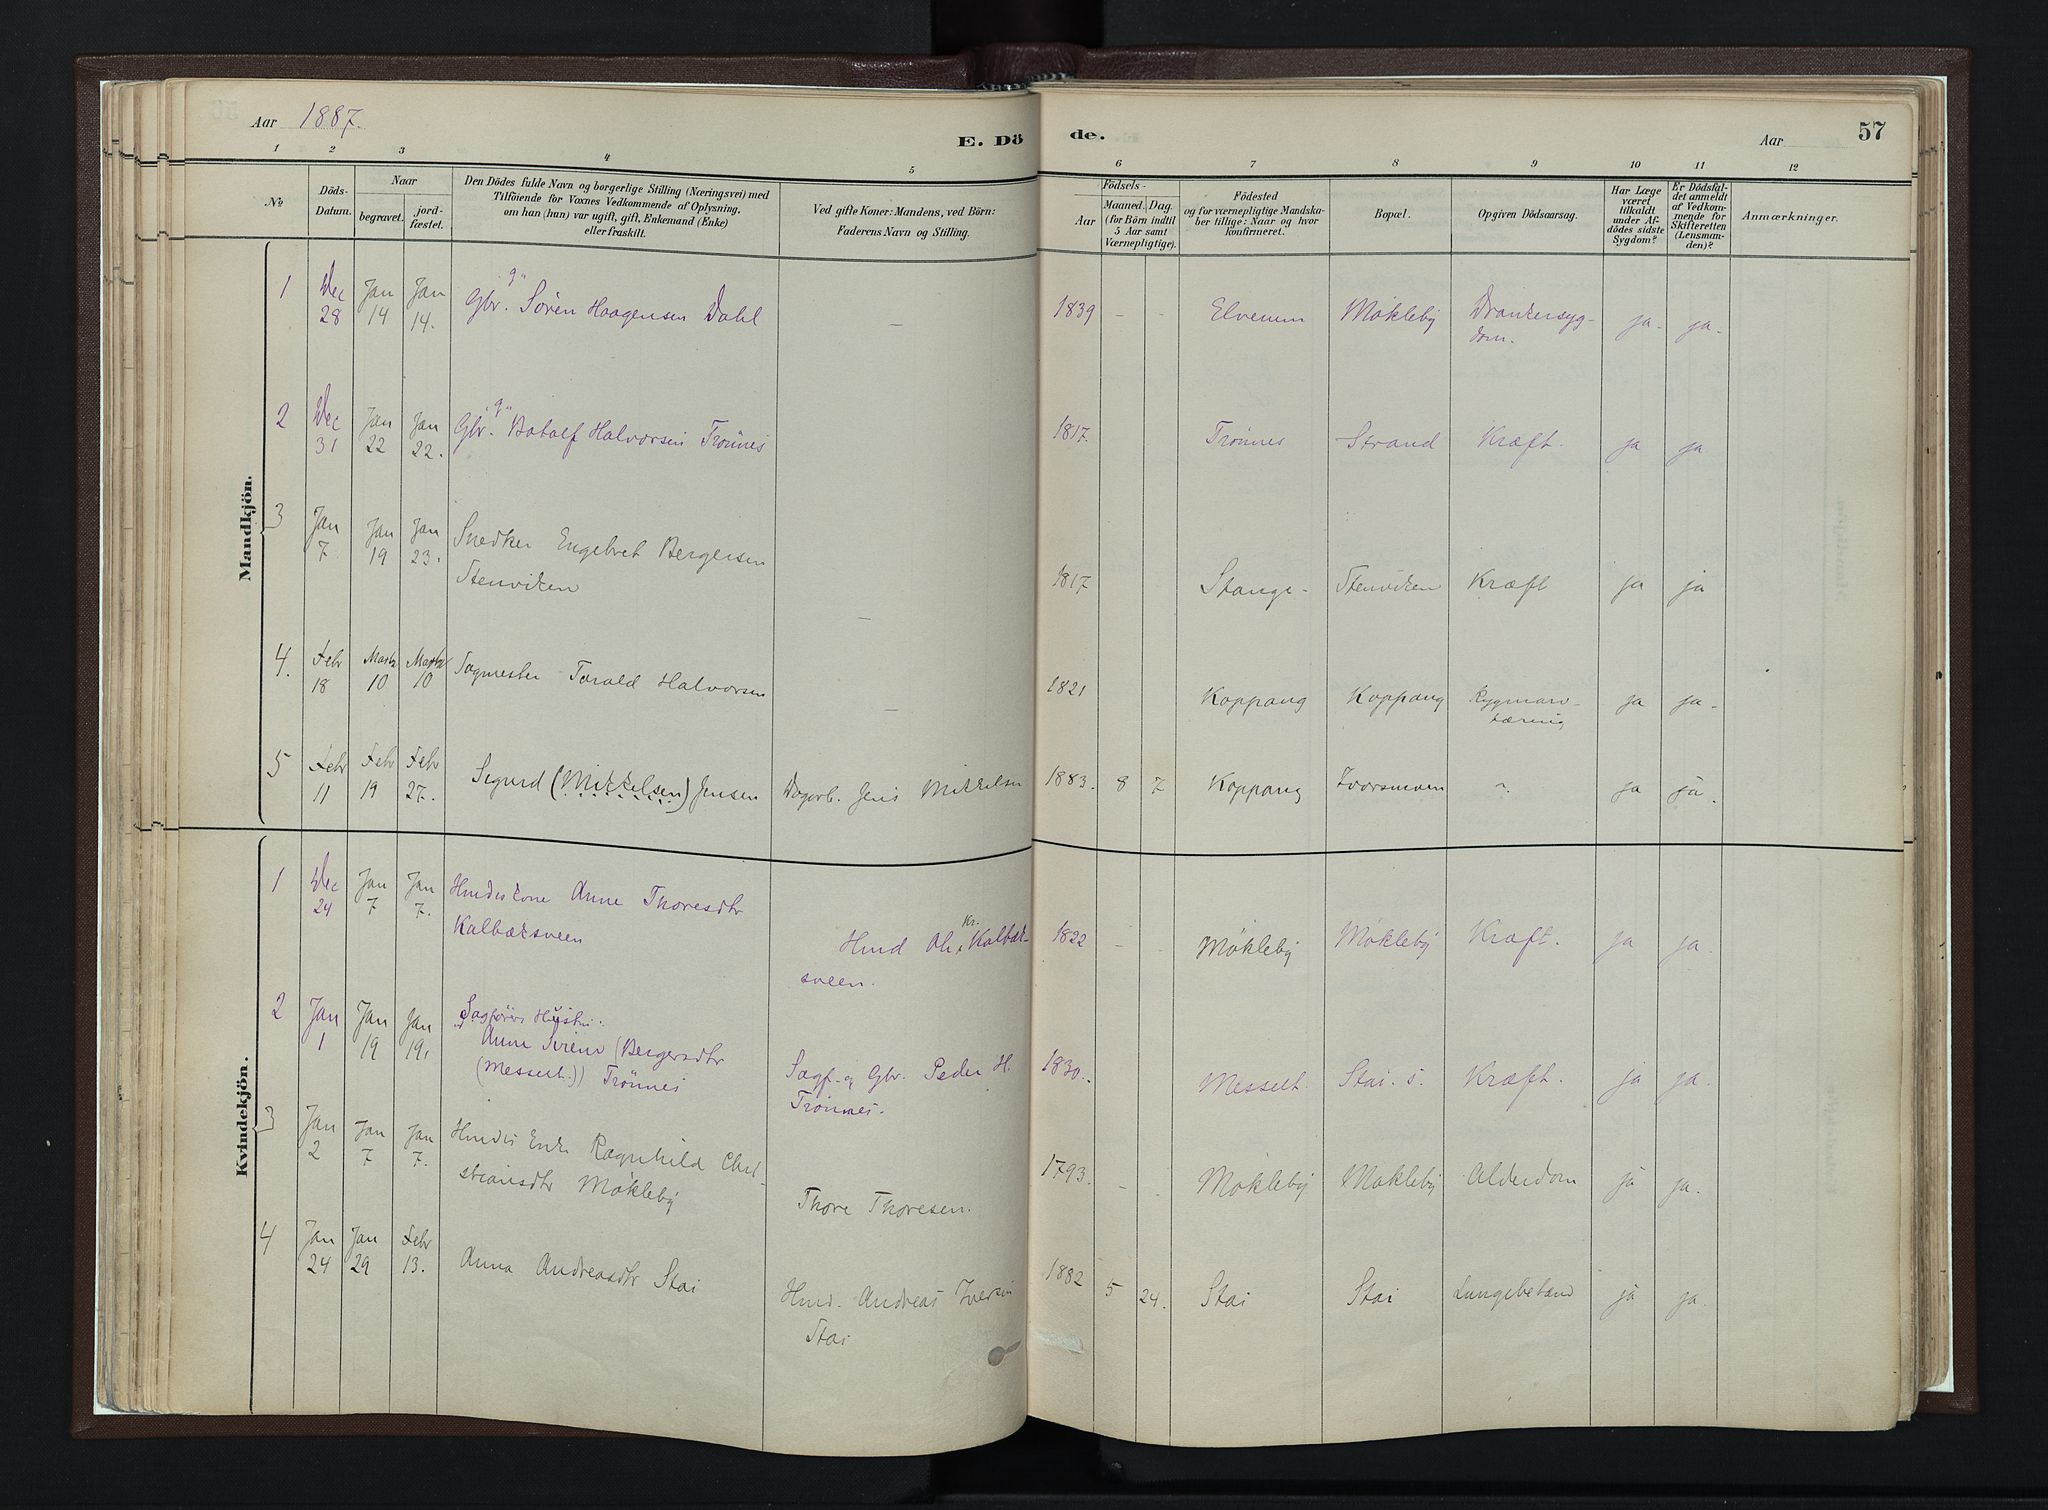 Aar 1887.
E. Dö
de.
Aar
57
1 2 3 4 5 6 7 8 9 10 11 12
No
Döds-
Datum.
Naar
begravet.
jord-
fæstet.
Den Dödes fulde Navn og borgerlige Stilling (Næringsvei) med
Tilföiende for Voxnes Vedkommende af Oplysning,
om han (hun) var ugift, gift, Enkemand (Enke)
eller fraskilt.
Ved gifte Koner: Mandens, ved Börn:
Faderens Navn og Stilling.
Födsels-
Aar
Maaned.
Dag.
(for Börn indtil
5 Aar samt
Værnepligtige).
Födested
og for værnepligtige Mandska-
ber tillige: Naar og hvor
konfirmeret.
Bopæl.
Opgiven Dödsaarsag.
Har Læge
været
tilkaldt
under Af-
dödes sidste
Sygdom?
Er Dödsfal-
det anmeldt
af Vedkom-
mende for
Skifteretten
(Lensman-
den)?
Anmærkninger.
Mandkjön.
1 Dec 28 Jan 14 Jan 14. "g" Gbr. Sören Haagensen Dahl – 1839 – - Elverum Mökleby Drankersyg-
dom. ja. ja.
2 Dec 31 Jan 22 Jan 22. "g" Gbr. Botolf Halvorsen Trönnes 1817. Trönnes Strand Kræft. ja ja
3 Jan 7. Jan 19 Jan 23. Snedker Engebret Bergersen
Stenviken – 1817 Stange - Stenviken Kræft ja ja
4. Febr 18 Marts 10 Marts 10 Sagmester Torald Halvorsen – 1821 Koppang Koppang Rygmarv-
tæring ja ja.
5 Febr 11 Febr 19 Febr 27. Sigurd (Mikkelsen) Jensen Dagarb. Jens Mikkelsen 1883. 8 7 Koppang Ivarsmoen ja ja.
Kvindekjön.
1 Dec 24 Jan 7 Jan 7. Huuseskone Anne Thoresdtr
Kalbæksveen Hmd Ole Kr. Kalbæk-
sveen. 1822 – - Mökleby Mökleby Kræft. ja ja.
2 Jan 1 Jan 19 Jan 19. Sagförers Hustru.
Anne Sirene (Bergersdtr
(Messelt.)) Trönnes Sagf. og Gbr. Peder H.
Trönnes. 1830. Messelt. Stai. s. Kræft. ja ja.
3 Jan 2 Jan 7 Jan 7. Enke Ragnhild Chri-
stiansdtr Mökleby Thore Thoresen. 1793. – - Mökleby Mökleby Alderdom ja ja.
4 Jan 24 Jan 29 Febr 13. Anna Andreasdtr Stai Hmd. Andreas Iversen
Stai 1882 5 24. Stai Stai Lungebetænd ja ja.